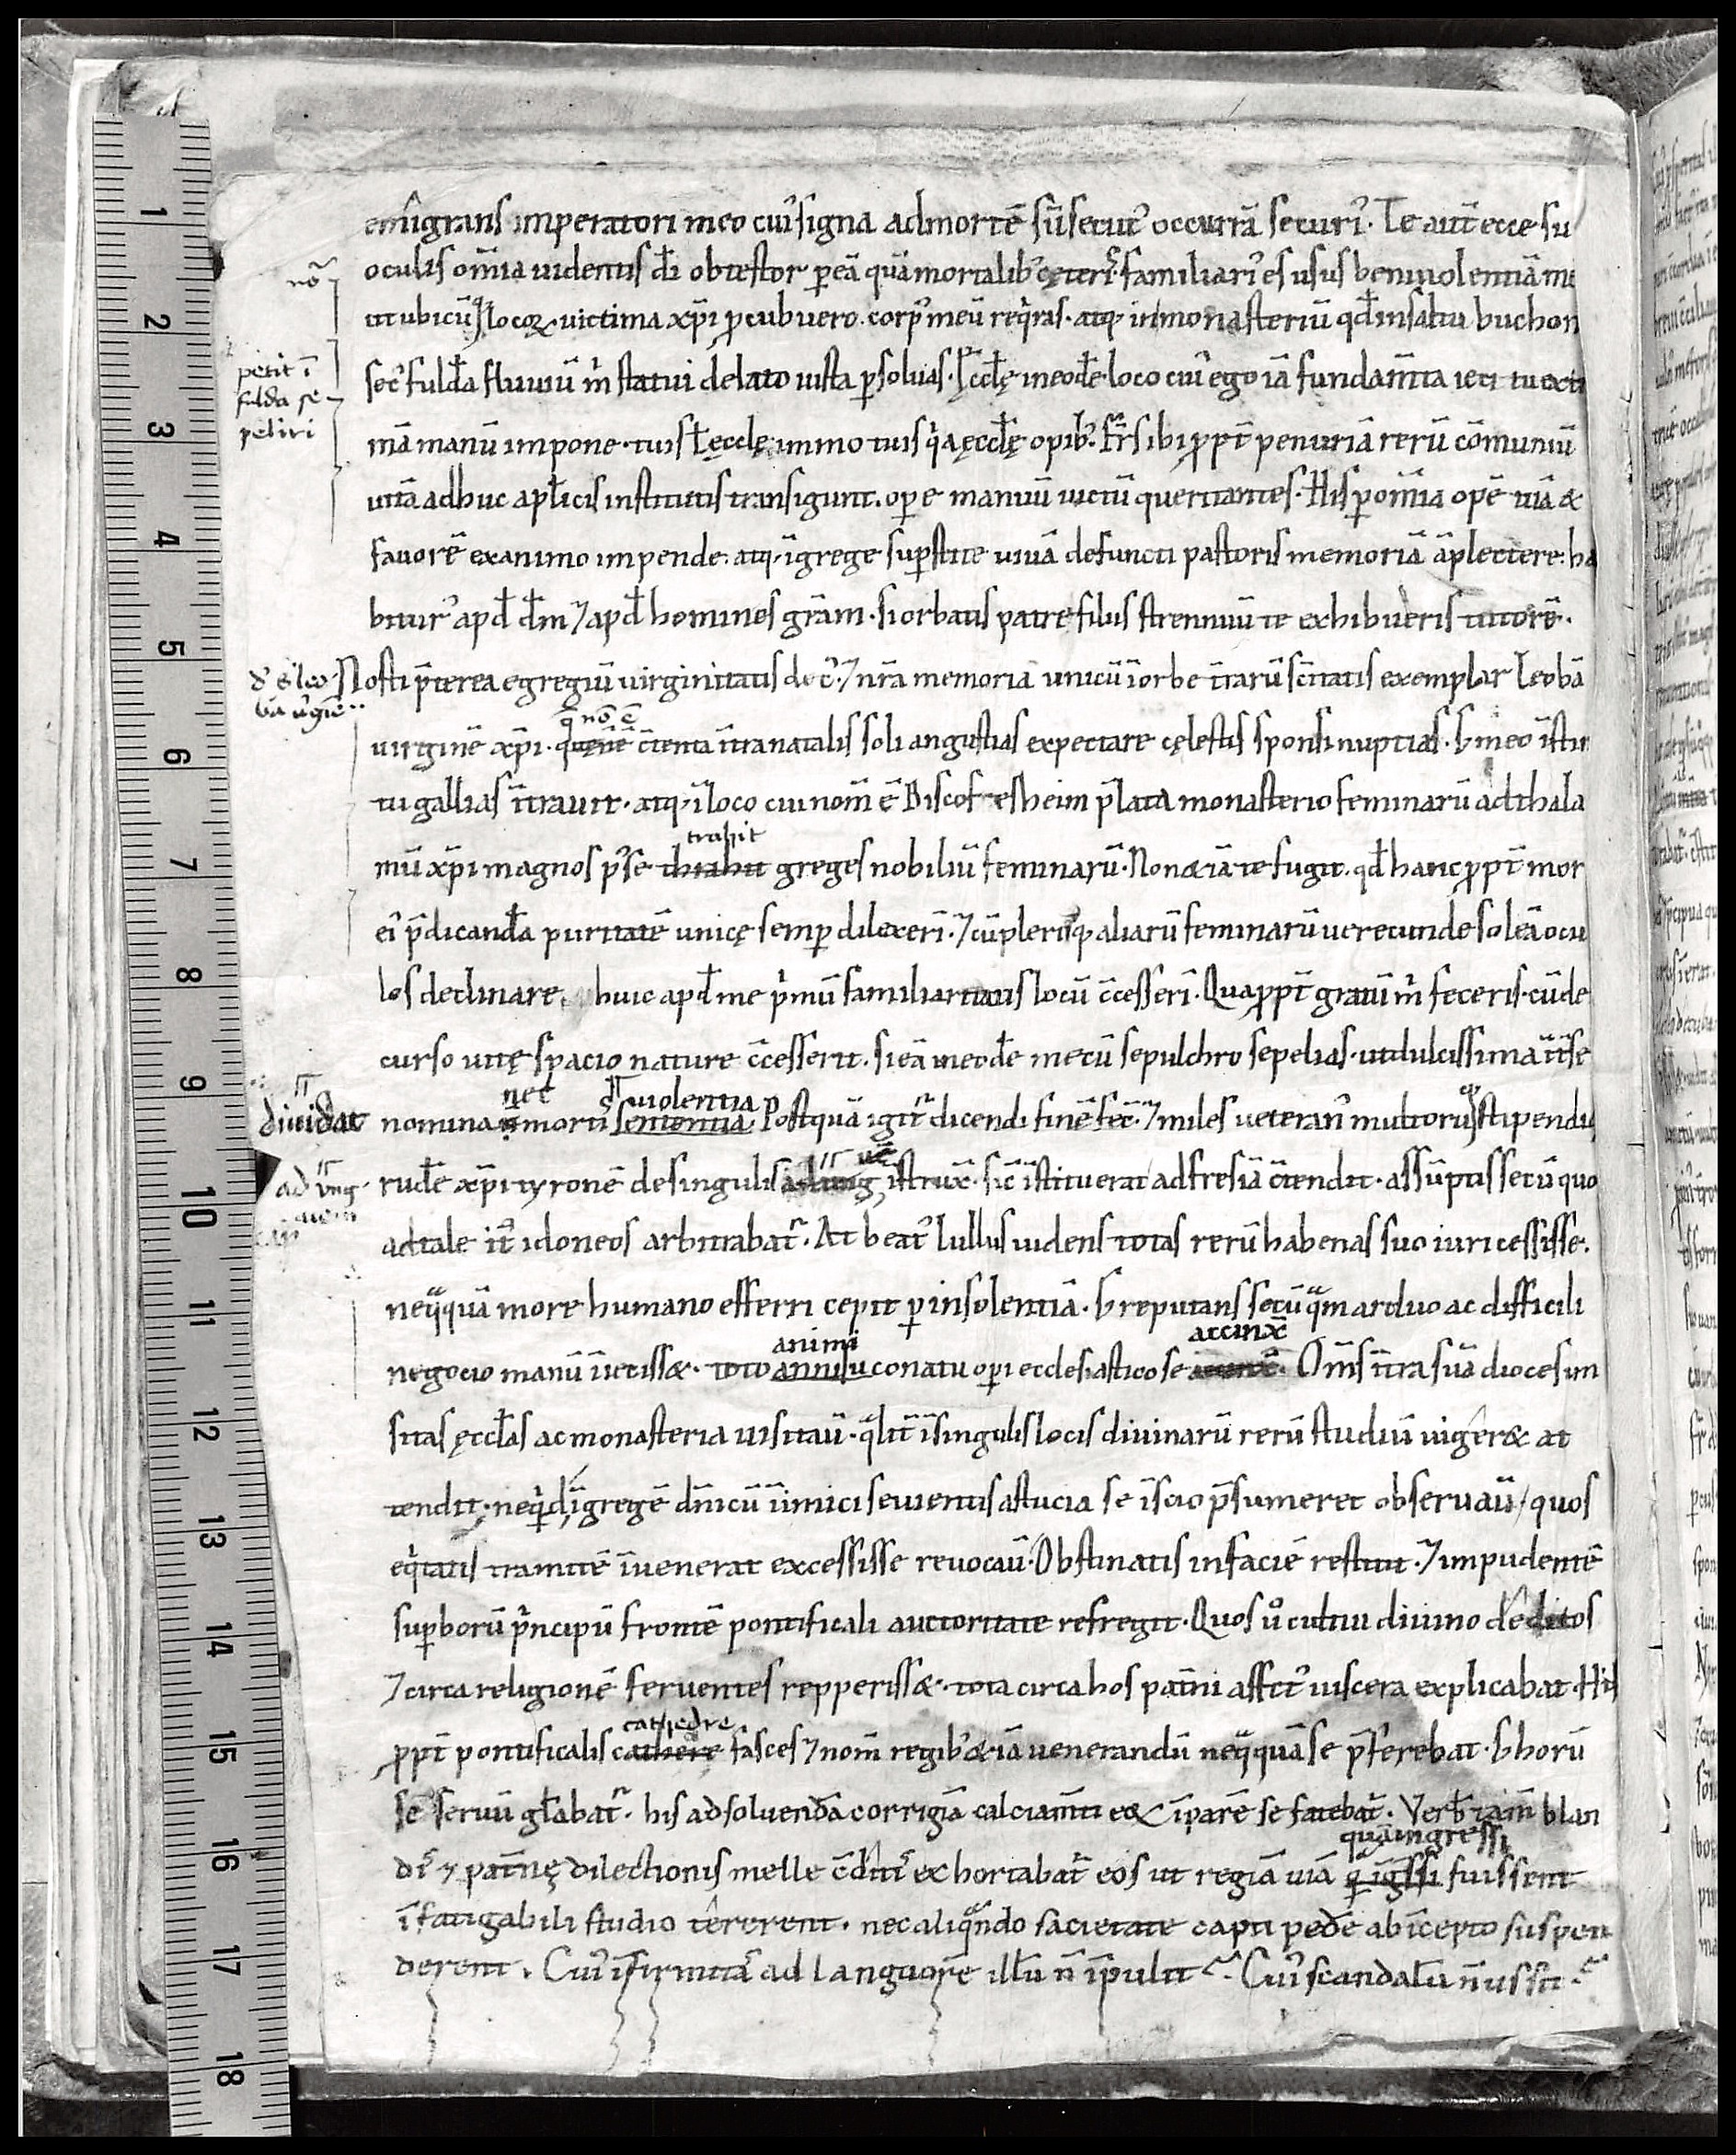 emigrans imperatori meo cuiꝰ signa ad mortē sū secutꝰ occurrā securꝰ. Te autē ecce su
oculis om̄ia uidentis dī obtestor ꝑ eā quā mortalibꝰ ceterꝭ familiariꝰ es usus beniuolentiā me
ut ubicūqꝫ locoꝝ uictima xp̄i ꝓcubuero. corpꝰ meū reqͥras. atqꝫ in monasteriū qd̄ in saltu buchon
nō
secꝰ fulda fluuiū m̄ statui delato iusta ꝑsoluas. Ęccłę in eodē loco cuiꝰ ego iā fundam̄ta ieci tu extͥ
petit ī
fulda se
peliri
mā manū impone. tuis ł ęccłę immo tuis qͥa ęccłę opibꝰ. Fr̄s ibi ꝓpt̄ penuriā rerū cōmuniū
uitā adhuc apłicis institutis transigunt. ope manuū uictū queritantes. His ꝑ om̄ia opē tuā &
fauorē ex animo impende. atqꝫ ī grege suꝑstite uiuā defuncti pastoris memoriā āplectere. ha
biturꝰ apđ dm̄ ⁊ apđ homines grām. si orbatis patre filiis strennuū te exhibueris tutorē.
Nosti p̄terea egregiū uirginitatis decꝰ. ⁊ nr̄a memoria unicū ī orbe t̄rarū sc̄itatis exemplar Leobā
d' s leo
bā ūgīē
q̄ nō ē
uirginē xp̄i. c̄tenta īt̄ra natalis soli angustias expectare cęlestis sponsi nuptias. s; meo īstin
tu gallias īt̄rauit. atqꝫ ī loco cui nom̄ ē Biscofesheim p̄lata monasterio feminarū ad thala
trahit
mū xp̄i magnos pꝰ se thrahit greges nobiliū feminarū. Non &iā te fugit. qđ hanc ꝓpt̄ mor
ēi p̄dicanda puritatē unicę semꝑ dilexeri. ⁊ cū plerūqꝫ aliarū feminarū uerecunde soleā ocu
los declinare. huic apđ me pͥmū familiaritatis locū c̄cesseri. Quaꝓpt̄ gratū m̄ feceris. cū de
curso uitę spacio nature c̄cesserit. si eā in eodē mecū sepulchro sepelias. ut dulcissima īt̄ se
nec uiolentia
diuidat
nomina mortis sententia. Postquā igit̄ dicendi finē fec̄. ⁊ miles ueteranꝰ multorūqꝫ stipendii
rudē xp̄i tyronē de singulis īstrux̄. sic̄ īstituerat ad fresiā c̄tendit. assūptis secū quo
ad ung
ad tale it̄ idoneos arbitrabat̄. At beatꝰ lullus uidens totas rerū habenas suo iuri cessisse.
neq̄quā more humano efferri cepit ꝑ insolentiā. s; reputans secū qͣm arduo ac difficili
animi accinx̄
negocio manū iniecisset. toto annisu conatu oꝑi ecclesiastico se Om̄s īt̄ra suā diocesim
sitas ęccłas ac monasteria uisitaū. qͣlit̄ ī singulis locis diuinarū rerū studiū uiger& at
tendit. neqͥd ī gregē dn̄icū īimici seuientis astucia se īscio p̄sumeret obseruaū. quos
eqͥtatis tramitē īuenerat excessisse reuocaū. Obstinatis in faciē restitit. ⁊ impudentē
suꝑborū pͥncipū frontē pontificali auctoritate refregit. Quos ů cultui diuino deditos
⁊ circa religionē feruentes repperiss&. tota circa hos pat̄ni affectꝰ uiscera explicabat. His
cathedre
ꝓpt̄ pontificalis cathere fasces ⁊ nom̄ regibꝰ &iā uenerandū neq̄quā se p̄ferebat. s; horū
se seruū głabat̄. his ad soluendā corrigiā calciam̄ti eoꝝ īparē se fatebat̄. Verbꝭ tam̄ blan
quā ingressi
dꝭ ⁊ pat̄nę dilectionis melle c̄ditꝭ exhortabat̄ eos ut regiā uiā īgssi fuissent
īfatigabili studio tererent. nec aliqͣndo sacietate capti pedē ab īcepto suspen
derent. Cuiꝰ īfirmitas ad languorē illū n̄ īpulit. Cuiꝰ scandalū n̄ ussit